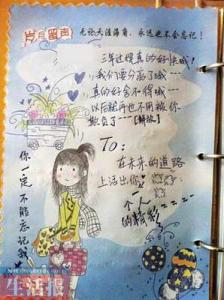 岁月留声
无论天涯海角，永远也不会忘记！
三年过得真的好快哦！
我们要分离了哦…
真的好舍不得哦…
以后就再也不用被你
欺负了…【解放】
To:
在未来的道路
上活出你
个人
的精彩
你一定不能忘记我
生活报